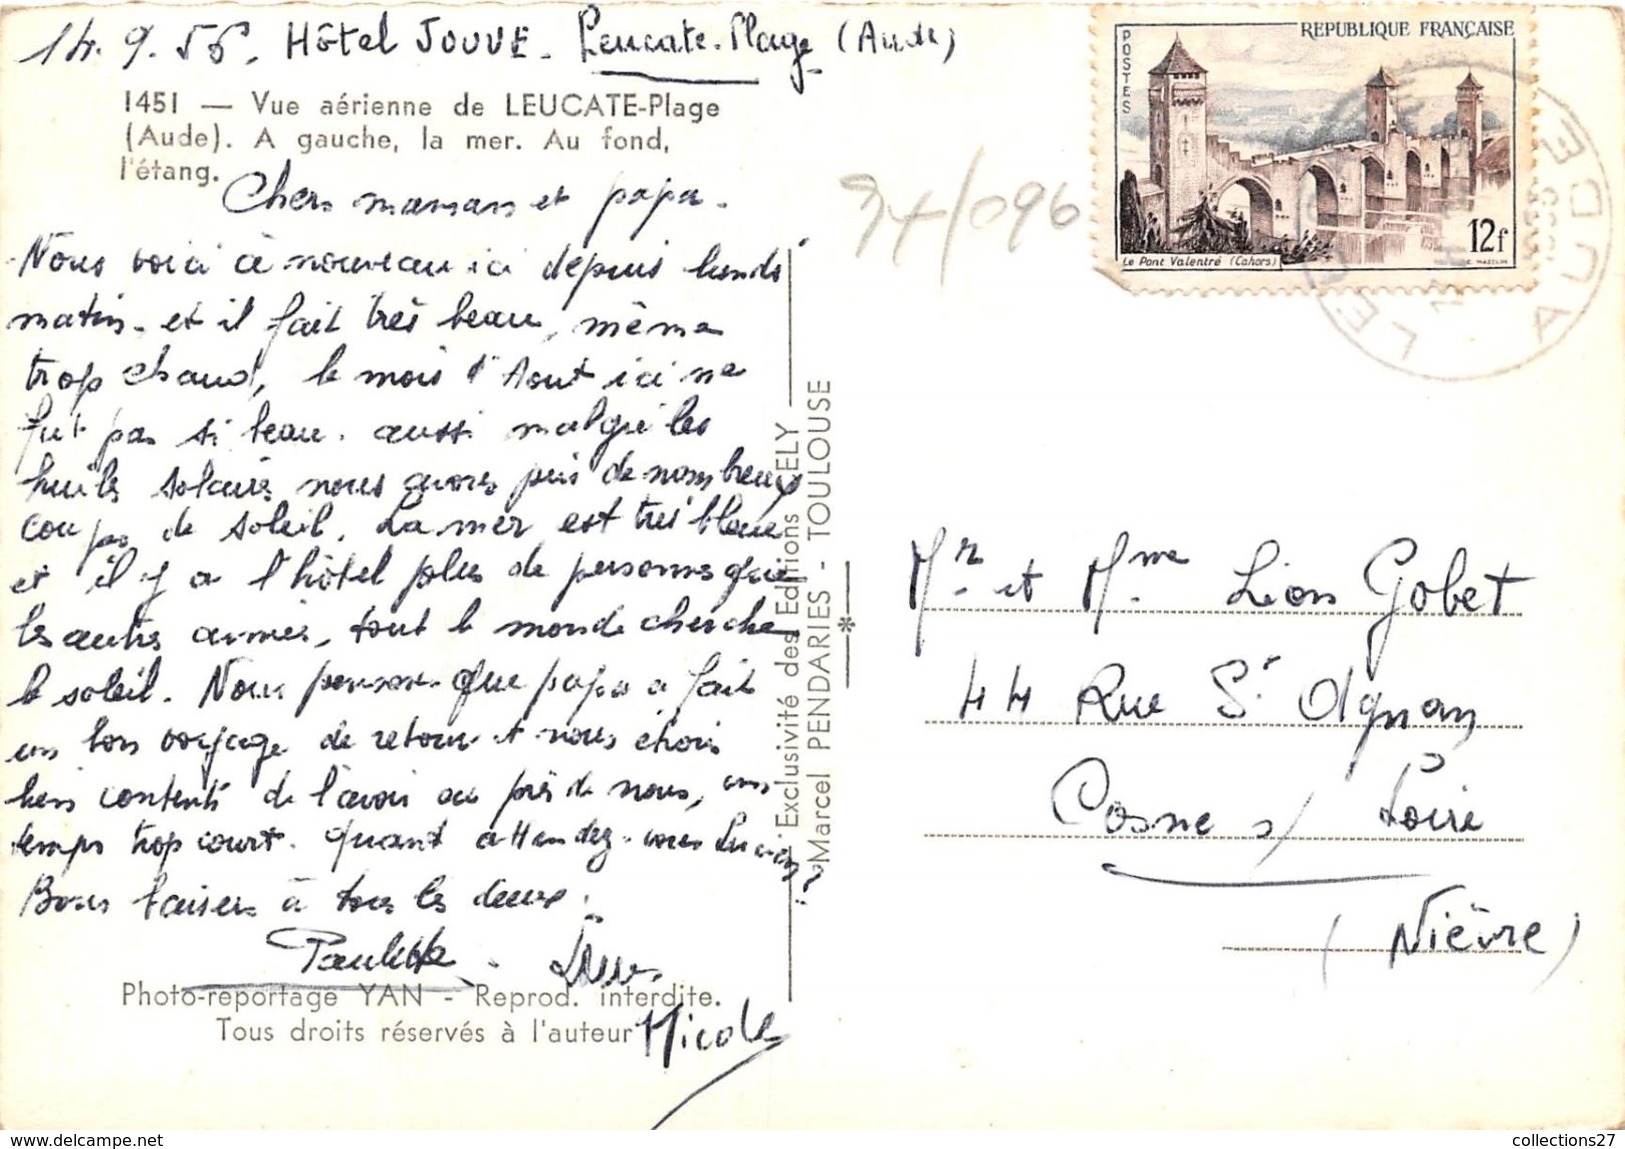 14.9.56. Hôtel JOUVE - Leucate-Plage (Aude)
1451 — Vue aérienne de LEUCATE-Plage
(Aude). A gauche, la mer. Au fond,
l'étang.
Chers maman et papa.
Nous voici à nouveau ici depuis lundi
matin. et il fait très beau, même
trop chaud, le mois d'Aout ici ne
fut pas si beau. aussi malgré les
huiles solaires nous avons pris de nombreux
coups de soleil. La mer est très bleue
et il y a l'hôtel plus de personnes que
les autres années, tout le monde cherche
le soleil. Nous pensons que papa a fait
un bon voyage de retour et nous étions
bien contents de l'avoir au près de nous,
temps trop court. quant attendez-vous Lucien?
Bons baisers à tous les deux.
Paulette
Nicole
Photo-reportage YAN - Reprod. interdite.
Tous droits réservés à l'auteur
Exclusivité des Editions ELY
Marcel PENDARIES - TOULOUSE
*
34/096
POSTES
REPUBLIQUE FRANÇAISE
12f
Le Pont Valentré (Cahors)
C. MAZELIN
LEUCATE
AUDE
Mr. et Mme Léon Gobet
44 Rue St Agnan
Cosne s/ Loire
(Nièvre)
www.delcampe.net
collections27